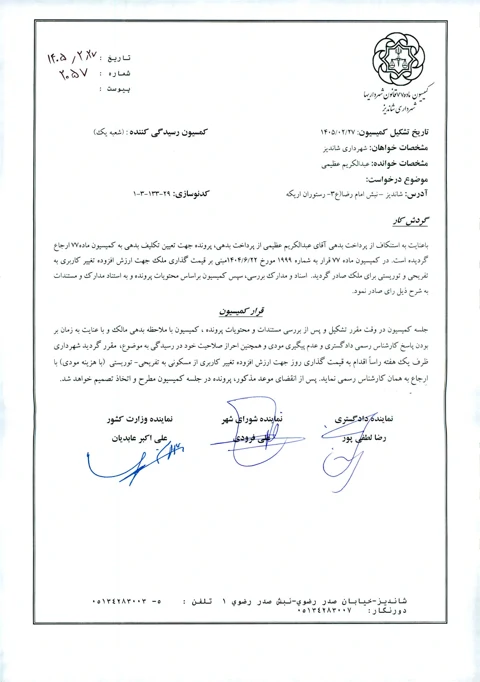 تاریخ : ۱۴۰۵/۲/۲۷
شماره : ۲۰۵۷
پیوست :
کمیسیون ماده۷۷قانون شهرداریها
شهرداری شاندیز
تاریخ تشکیل کمیسیون: ۱۴۰۵/۰۲/۲۷
کمسیون رسیدگی کننده : (شعبه یک)
مشخصات خواهان: شهرداری شاندیز
مشخصات خوانده: عبدالکریم عظیمی
موضوع درخواست:
آدرس: شاندیز –نبش امام رضا(ع)۳- رستوران اریکه
کدنوسازی: ۲۹-۱۳۳-۳-۱
گردش کار
باعنایت به استنکاف از پرداخت بدهی آقای عبدالکریم عظیمی از پرداخت بدهی، پرونده جهت تعیین تکلیف بدهی به کمیسیون ماده۷۷ ارجاع
گردیده است. در کمیسیون ماده ۷۷ قرار به شماره ۱۹۹۹ مورخ ۱۴۰۴/۶/۲۲مبنی بر قیمت گذاری ملک جهت ارزش افزوده تغییر کاربری به
تفریحی و توریستی برای ملک صادر گردید. اسناد و مدارک بررسی، سپس کمیسیون براساس محتویات پرونده و به استناد مدارک و مستندات
به شرح ذیل رای صادر نمود.
قرار کمیسیون
جلسه کمیسیون در وقت مقرر تشکیل و پس از بررسی مستندات و محتویات پرونده ، کمیسیون با ملاحظه بدهی مالک و با عنایت به زمان بر
بودن پاسخ کارشناس رسمی دادگستری و عدم پیگیری مودی و همچنین احراز صلاحیت خود در رسیدگی به موضوع، مقرر گردید شهرداری
ظرف یک هفته راساً اقدام به قیمت گذاری روز جهت ارزش افزوده تغییر کاربری از مسکونی به تفریحی- توریستی (با هزینه مودی) با
ارجاع به همان کارشناس رسمی نماید. پس از انقضای موعد مذکور، پرونده در جلسه کمیسیون مطرح و اتخاذ تصمیم خواهد شد.
نماینده دادگستری
نماینده شورای شهر
نماینده وزارت کشور
رضا لطفی پور
علی فرودی
علی اکبر عابدیان
شاندیز-خیابان صدر رضوي-نبش صدر رضوي ۱ تلفن : ۵- ۰۵۱۳۴۲۸۳۰۰۳
دورنگار: ۰۵۱۳۴۲۸۳۰۰۷